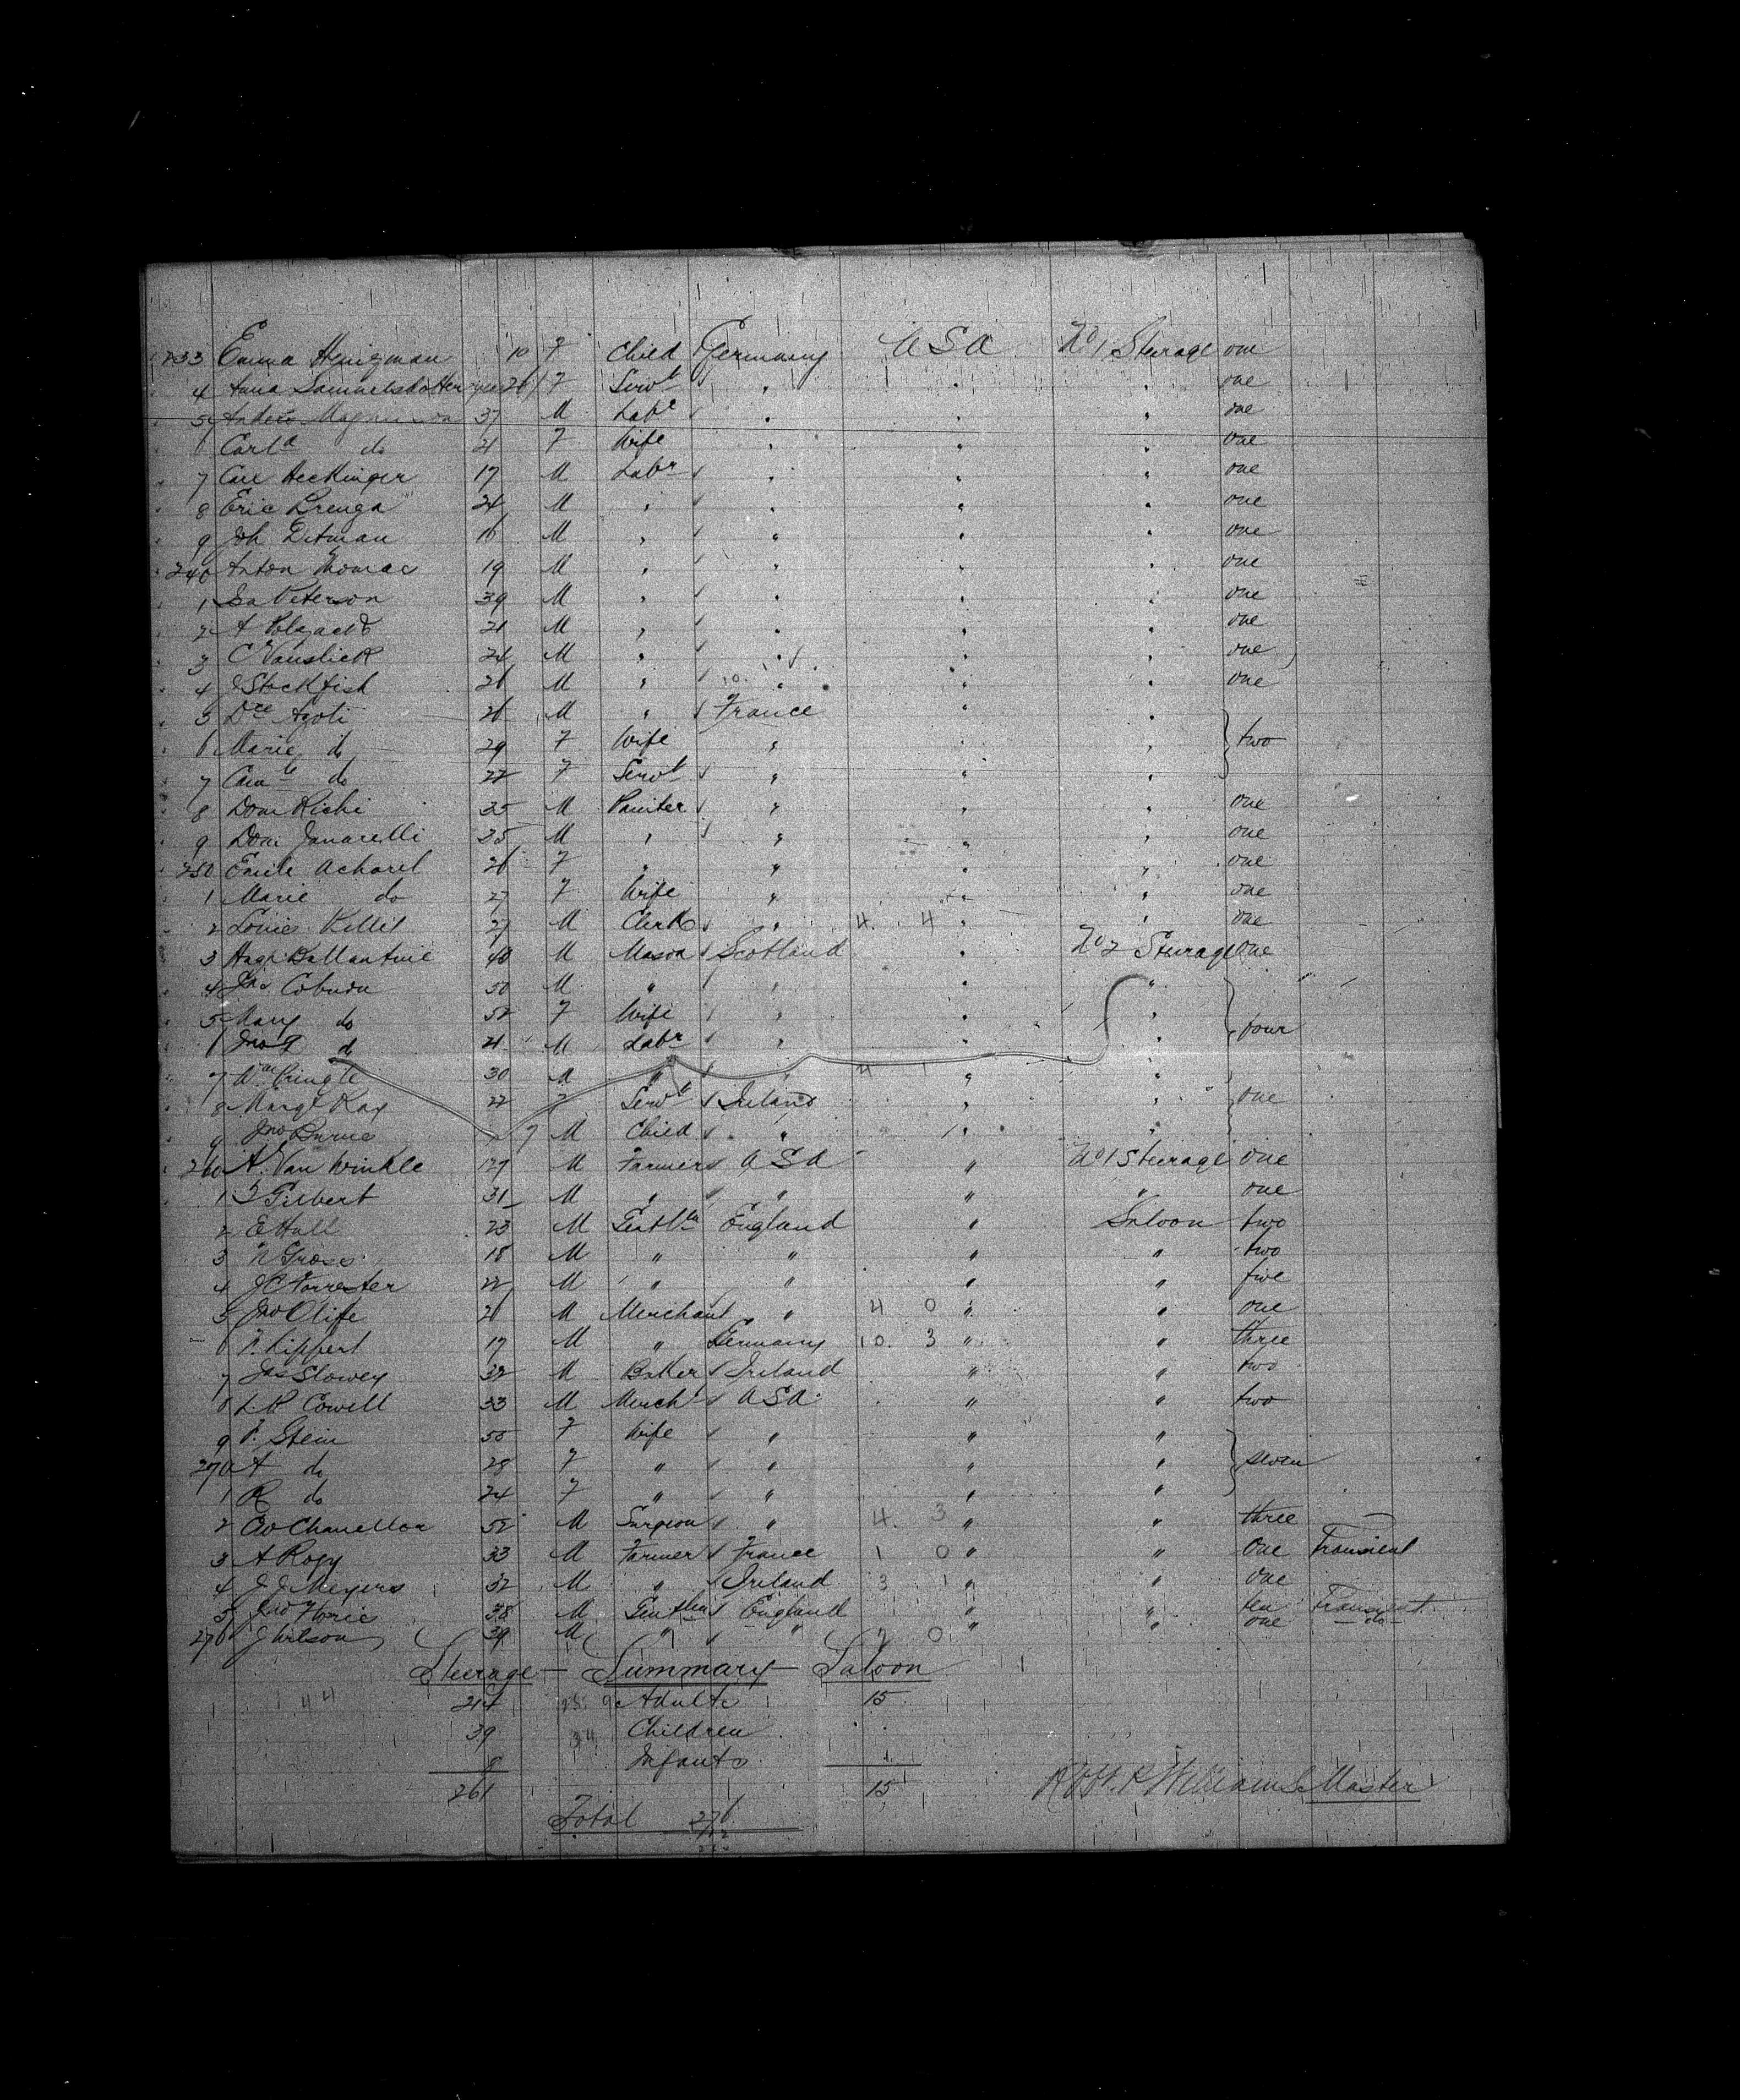 233 Emma Henigman 10 F Child Germany USA No 1 Steerage one
4 Anna Samuelsdotter 26 F Servt " " " one
5 Anders Magnusson 37 M Labr " " " one
6 Carla do 21 F Wife " " " one
7 Carl Heckinger 17 M Labr " " " one
8 Eric Drenga 24 M " " " " one
9 Joh Ditman 16 M " " " " one
240 Anton Thomas 19 M " " " " one
1 Peterson 39 M " " " " one
2 A 21 M " " " " one
3 C Vanslick 24 M " " " " one
4 J Stockfish 26 M " " " " one
5 Azoti 26 M " France " "
6 Marie do 29 F Wife " " " two
7 do 22 F Servt " " "
8 Dom Richi 35 M Painter " " " one
9 Dom Janarelli 25 M " " " " one
250 Emile Acharel 26 F " " " " one
1 Marie do 27 F Wife " " " one
2 Louis Kellit 27 M Clerk " 4. 4 " " one
3 Hugh Ballantine 40 M Mason Scotland " No 2 Steerage one
4 Jas Coburn 50 M " " " "
5 Mary do 52 F Wife " " "
6 Jno do 21 M Labr " " " four
7 Wm Pringle 30 M " " 4 1 " "
8 Margt Kay 22 F Servt Ireland " " one
9 Jno Burne 7 M Child " " "
260 A. Van Winkle 27 M Farmer USA " No 1 Steerage one
1 T Gilbert 31 M " " " " one
2 E Hall 23 M Gentln England " Saloon two
3 Gross 18 M " " " " two
4 J C Forrester 22 M " " " " five
5 Jno Olife 26 M Merchant " 4 0 " " one
6 Lippert 17 M " Germany 10. 3 " " three
7 Jas Slowey 32 M Baker Ireland " " two
8 L. R Cowell 33 M Mercht USA " " two
9 Stein 50 F Wife " " "
270 A do 28 F " " " " seven
1 R do 24 F " " " "
2 Chancellor 52 M Surgeon " 4. 3 " " three
3 A Rogy 33 M Farmer France 1 0 " " one Transient
4 J J Meyers 32 M " Ireland 3 1 " " one
5 Jno Horie 38 M Gentlen England " " ten Transient
276 J Wilson 39 M " " 7 0 " one do
Steerage — Summary — Saloon
44 214 Adults 15
39 34 Children
8 Infants
261 15
Robt. P Williams Master
Total 276